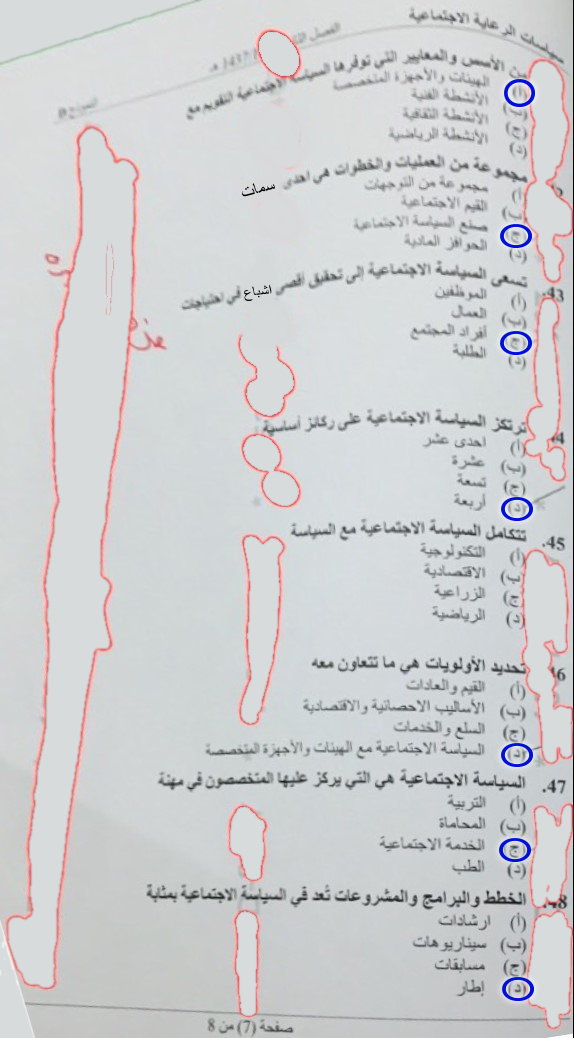 سياسات الرعاية الاجتماعية
من الأسس والمعايير التي توفرها السياسة الاجتماعية التقويم مع
(أ) الهيئات والأجهزة المتخصصة
(ب) الأنشطة الفنية
(ج) الأنشطة الثقافية
(د) الأنشطة الرياضية
مجموعة من العمليات والخطوات هي احدى سمات
(أ) مجموعة من التوجهات
(ب) القيم الاجتماعية
(ج) صنع السياسة الاجتماعية
(د) الحوافز المادية
43. تسعى السياسة الاجتماعية إلى تحقيق أقصى اشباع في احتياجات
(أ) الموظفين
(ب) العمال
(ج) أفراد المجتمع
(د) الطلبة
ترتكز السياسة الاجتماعية على ركائز أساسية
(أ) احدى عشر
(ب) عشرة
(ج) تسعة
(د) أربعة
45. تتكامل السياسة الاجتماعية مع السياسة
(أ) التكنولوجية
(ب) الاقتصادية
(ج) الزراعية
(د) الرياضية
46 تحديد الأولويات هي ما تتعاون معه
(أ) القيم والعادات
(ب) الأساليب الاحصائية والاقتصادية
(ج) السلع والخدمات
(د) السياسة الاجتماعية مع الهيئات والأجهزة المتخصصة
47. السياسة الاجتماعية هي التي يركز عليها المتخصصون في مهنة
(أ) التربية
(ب) المحاماة
(ج) الخدمة الاجتماعية
(د) الطب
48. الخطط والبرامج والمشروعات تُعد في السياسة الاجتماعية بمثابة
(أ) ارشادات
(ب) سيناريوهات
(ج) مسابقات
(د) إطار
صفحة (7) من 8